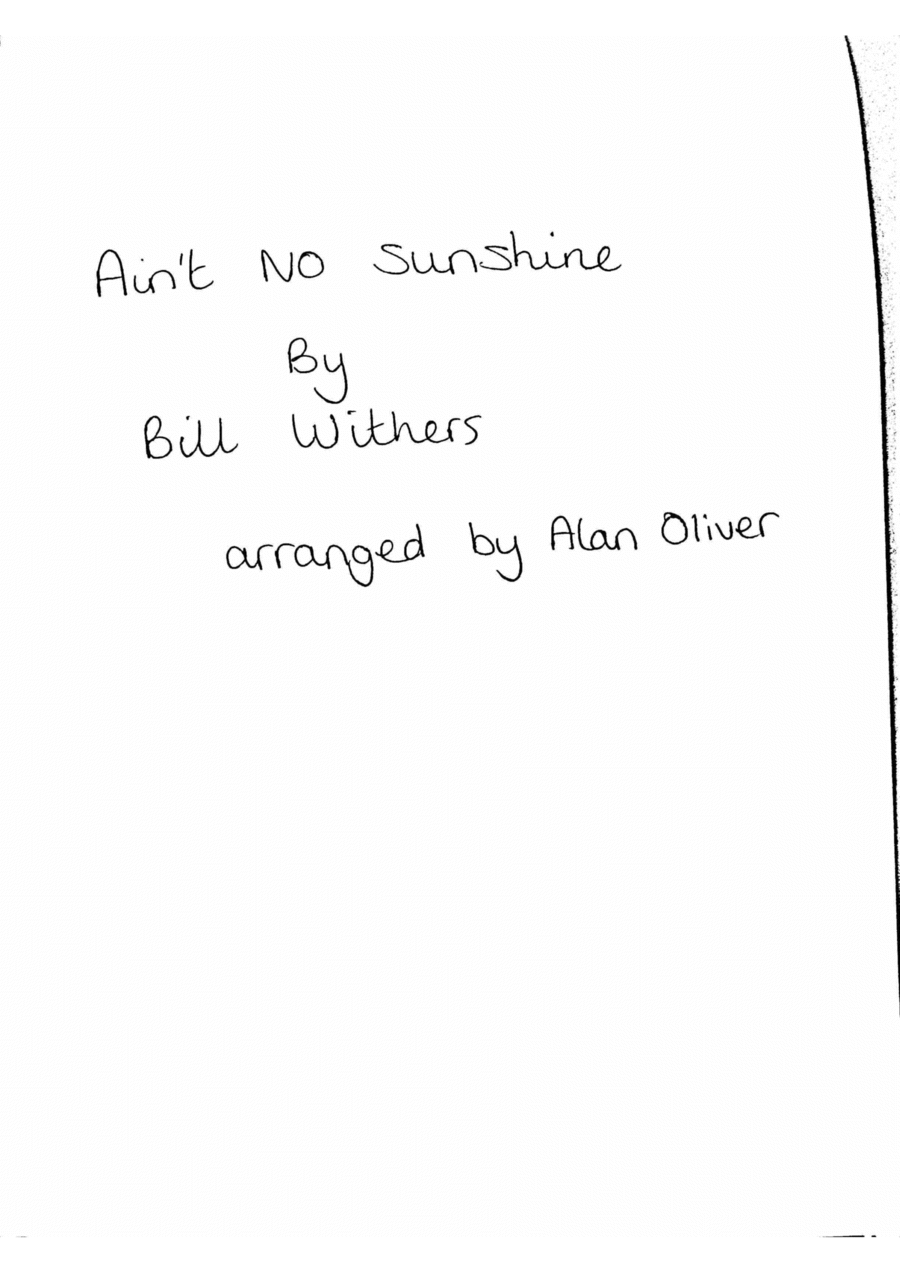 Ain't NO Sunshine
By
Bill Withers
arranged by Alan Oliver